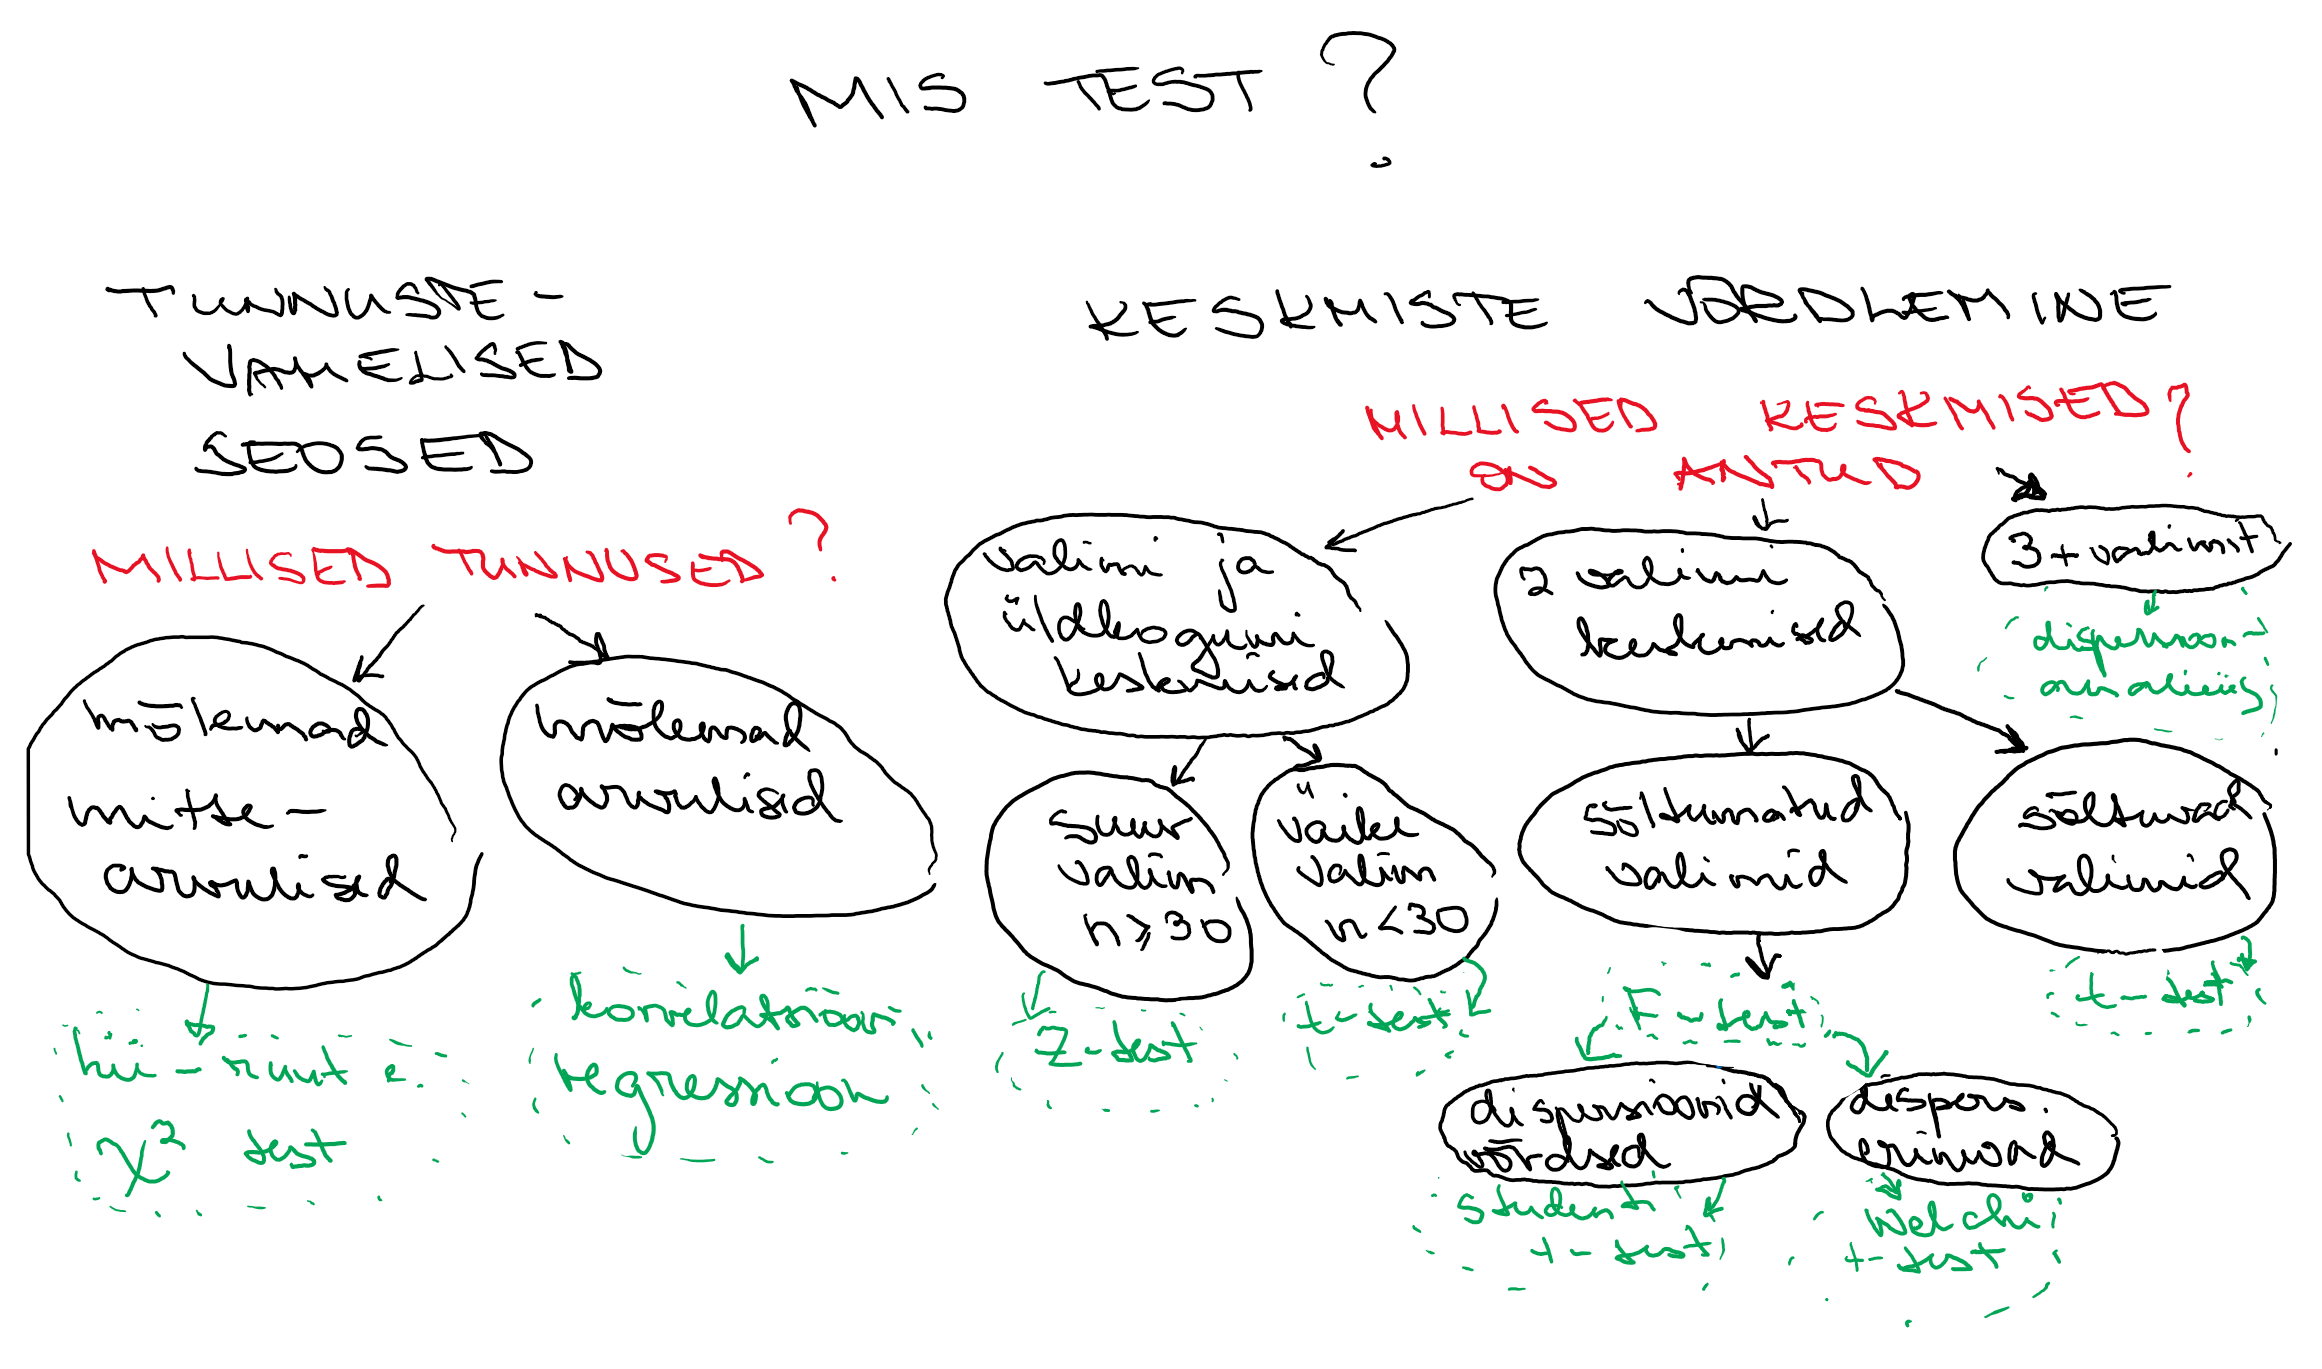 MIS TEST?
TUNNUSTE-
VAHELISED
SEOSED
MILLISED TUNNUSED?
mõlemad
mitte-
arvulised
hii-ruut e.
χ² test
mõlemad
arvulised
korrelatsioon,
regressioon
KESKMISTE VÕRDLEMINE
MILLISED KESKMISED?
ON ANTUD
valimi ja
üldkogumi
keskmised
suur
valim
n≥30
Z-test
väike
valim
n<30
t-test
2 valimi
keskmised
sõltumatud
valimid
F-test
dispersioonid
võrdsed
Studenti
t-test
dispers.
erinevad
Welchi
t-test
sõltuvad
valimid
t-test
3+ valimit
dispersioon-
analüüs